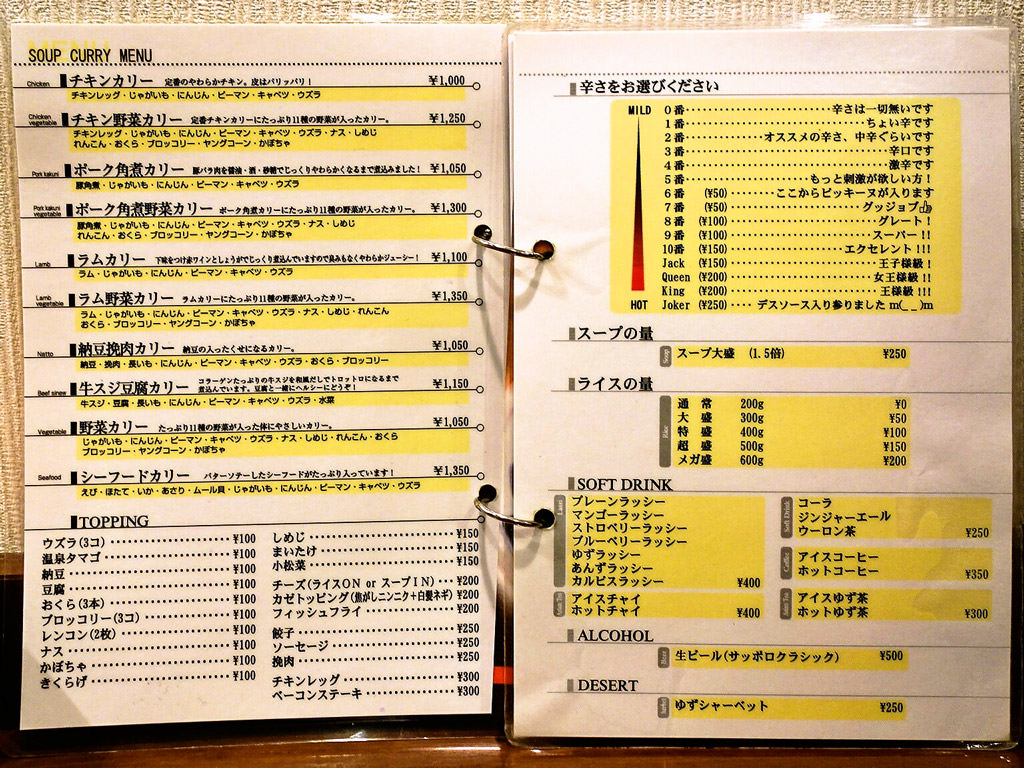 SOUP CURRY MENU
Chicken チキンカリー 定番のやわらかチキン。皮はパリッパリ! ¥1,000
チキンレッグ・じゃがいも・にんじん・ピーマン・キャベツ・ウズラ
Chicken vegetable チキン野菜カリー 定番チキンカリーにたっぷり11種の野菜が入ったカリー。 ¥1,250
チキンレッグ・じゃがいも・にんじん・ピーマン・キャベツ・ウズラ・ナス・しめじ
れんこん・おくら・ブロッコリー・ヤングコーン・かぼちゃ
Pork kakuni ポーク角煮カリー 豚バラ肉を醤油・酒・砂糖でじっくりやわらかくなるまで煮込みました! ¥1,050
豚角煮・じゃがいも・にんじん・ピーマン・キャベツ・ウズラ
Pork kakuni vegetable ポーク角煮野菜カリー ポーク角煮カリーにたっぷり11種の野菜が入ったカリー。 ¥1,300
豚角煮・じゃがいも・にんじん・ピーマン・キャベツ・ウズラ・ナス・しめじ
れんこん・おくら・ブロッコリー・ヤングコーン・かぼちゃ
Lamb ラムカリー 下味をつけ赤ワインとしょうがでじっくり煮込んでいますので臭みもなくやわらかジューシー! ¥1,100
ラム・じゃがいも・にんじん・ピーマン・キャベツ・ウズラ
Lamb vegetable ラム野菜カリー ラムカリーにたっぷり11種の野菜が入ったカリー。 ¥1,350
ラム・じゃがいも・にんじん・ピーマン・キャベツ・ウズラ・ナス・しめじ・れんこん
おくら・ブロッコリー・ヤングコーン・かぼちゃ
Natto 納豆挽肉カリー 納豆の入ったくせになるカリー。 ¥1,050
納豆・挽肉・長いも・にんじん・ピーマン・キャベツ・ウズラ・おくら・ブロッコリー
Beef sinew 牛スジ豆腐カリー コラーゲンたっぷりの牛スジを和風だしでトロットロになるまで
煮込んでいます。豆腐と一緒にヘルシーにどうぞ! ¥1,150
牛スジ・豆腐・長いも・にんじん・ピーマン・キャベツ・ウズラ・水菜
Vegetable 野菜カリー たっぷり11種の野菜が入った体にやさしいカリー。 ¥1,050
じゃがいも・にんじん・ピーマン・キャベツ・ウズラ・ナス・しめじ・れんこん・おくら
ブロッコリー・ヤングコーン・かぼちゃ
Seafood シーフードカリー バターソテーしたシーフードがたっぷり入っています! ¥1,350
えび・ほたて・いか・あさり・ムール貝・じゃがいも・にんじん・ピーマン・キャベツ・ウズラ
TOPPING
ウズラ(3コ) ¥100
温泉タマゴ ¥100
納豆 ¥100
豆腐 ¥100
おくら(3本) ¥100
ブロッコリー(3コ) ¥100
レンコン(2枚) ¥100
ナス ¥100
かぼちゃ ¥100
きくらげ ¥100
しめじ ¥150
まいたけ ¥150
小松菜 ¥150
チーズ(ライスON or スープIN) ¥200
カゼトッピング(焦がしニンニク+白髪ネギ) ¥200
フィッシュフライ ¥200
餃子 ¥250
ソーセージ ¥250
挽肉 ¥250
チキンレッグ ¥300
ベーコンステーキ ¥300
辛さをお選びください
MILD 0番 辛さは一切無いです
1番 ちょい辛です
2番 オススメの辛さ、中辛ぐらいです
3番 辛口です
4番 激辛です
5番 もっと刺激が欲しい方!
6番 (¥50) ここからピッキーヌが入ります
7番 (¥50) グッジョブ👍
8番 (¥100) グレート!
9番 (¥100) スーパー!!
10番 (¥150) エクセレント!!!
Jack (¥150) 王子様級!
Queen (¥200) 女王様級!!
King (¥200) 王様級!!!
HOT Joker (¥250) デスソース入り参りました m(_ _)m
スープの量
Soup スープ大盛 (1.5倍) ¥250
ライスの量
Rice 通 常 200g ¥0
大 盛 300g ¥50
特 盛 400g ¥100
超 盛 500g ¥150
メガ盛 600g ¥200
SOFT DRINK
プレーンラッシー
マンゴーラッシー
ストロベリーラッシー
ブルーベリーラッシー
ゆずラッシー
あんずラッシー
カルピスラッシー ¥400
アイスチャイ
ホットチャイ ¥400
Soft Drink コーラ
ジンジャーエール
ウーロン茶 ¥250
Coffee アイスコーヒー
ホットコーヒー ¥350
アイスゆず茶
ホットゆず茶 ¥300
ALCOHOL
Beer 生ビール(サッポロクラシック) ¥500
DESERT
ゆずシャーベット ¥250